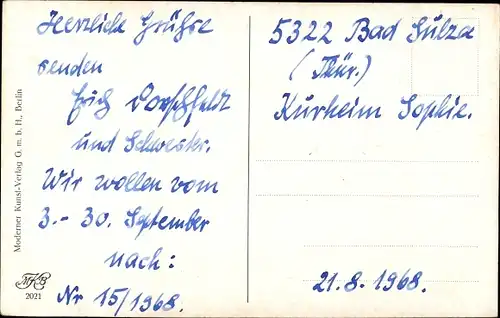 Herzliche Grüße
senden
Erich Dorschfeldt
und Schwester.
Wir wollen vom
3.- 30. September
nach:
Nr 15/1968.
5322 Bad Sulza
(Thür.)
Kurheim Sophie.
21.8.1968.
Moderner Kunst-Verlag G. m. b. H., Berlin
MKB
2021